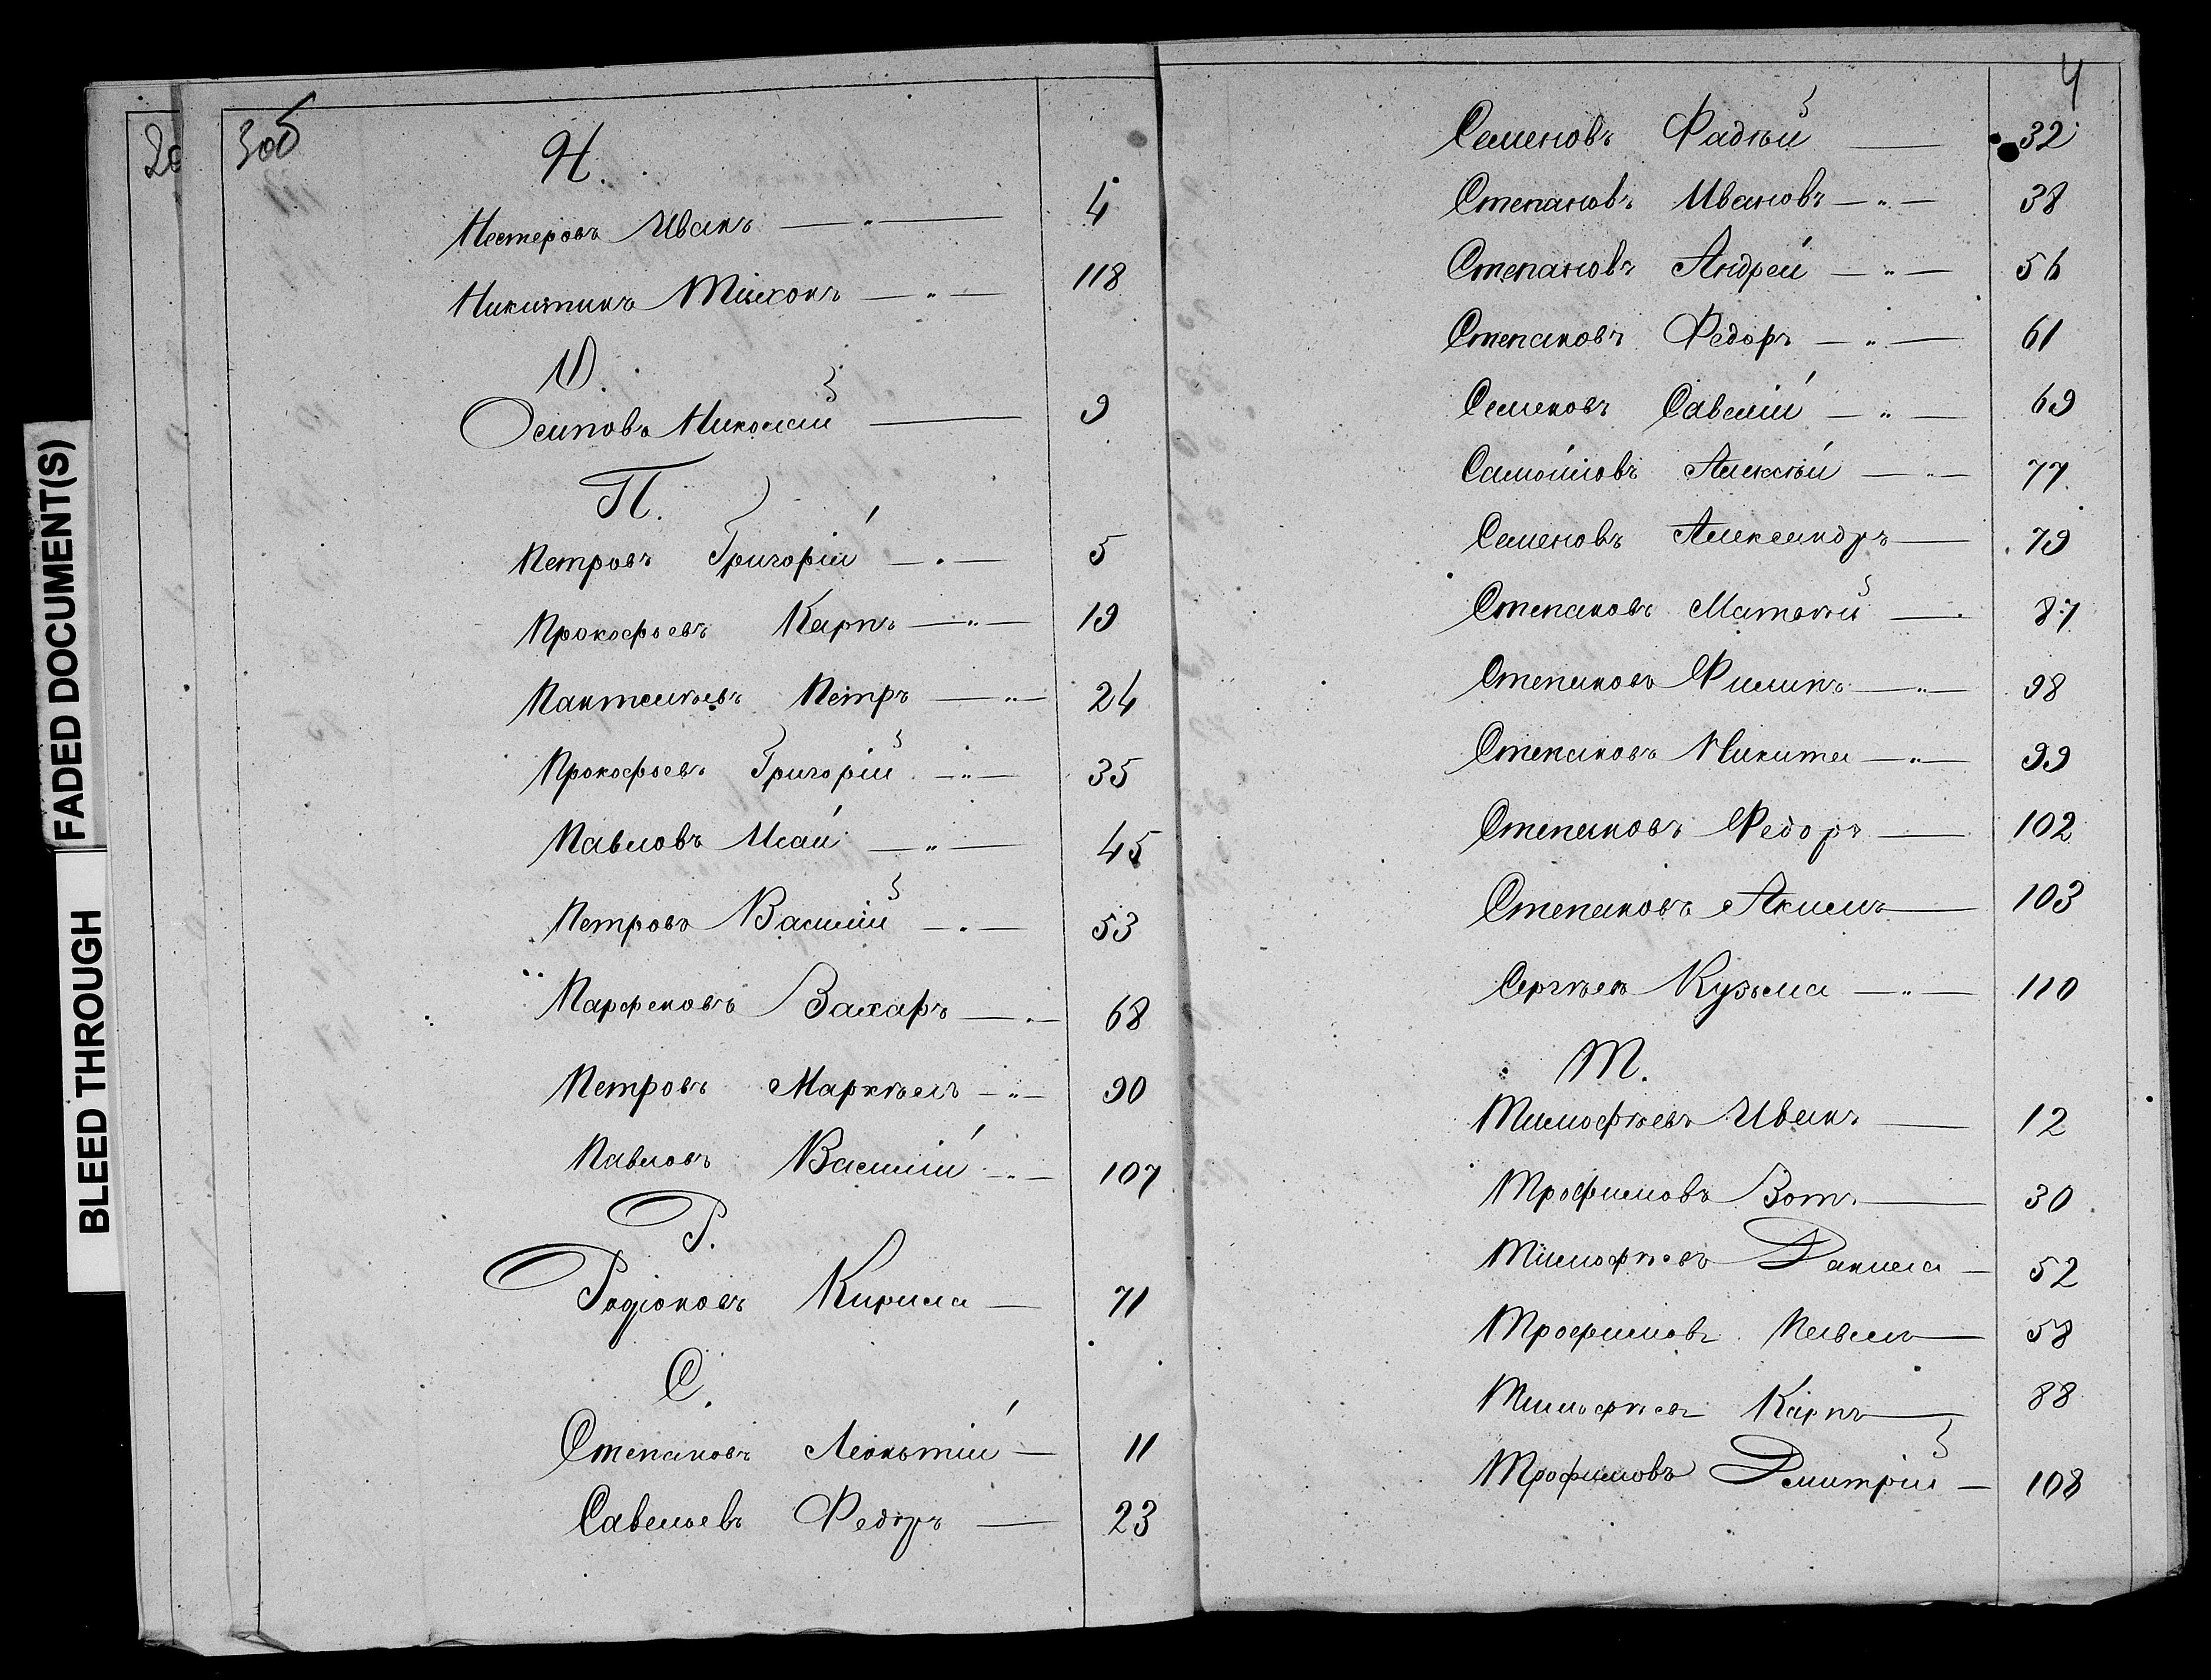 FADED DOCUMENT(S)
BLEED THROUGH
3об
Н.
Нестеровъ Иванъ — " — 4
Никитинъ Тихонъ — " — 118
О.
Осиповъ Николай — 9
П.
Петровъ Григорій — " — 5
Прокофьевъ Карпъ — " — 19
Пантелѣевъ Петръ — " — 24
Прокофьевъ Григорій — " — 35
Павловъ Исай — " — 45
Петровъ Василій — " — 53
Парфеновъ Захаръ — " — 68
Петровъ Маркѣлъ — " — 90
Павловъ Василій — " — 107
Р.
Родіоновъ Кирила — 71
С.
Степановъ Леонтій — 11
Савельевъ Федоръ — 23
4
Семеновъ Фадѣй — 32
Степановъ Ивановъ — " — 38
Степановъ Андрей — " — 56
Степановъ Федоръ — " — 61
Семеновъ Савелій — " — 69
Самойловъ Алексѣй — " — 77
Семеновъ Александръ — 79
Степановъ Матвѣй — 87
Степановъ Филипъ — " — 98
Степановъ Никита — " — 99
Степановъ Федоръ — 102
Степановъ Акимъ — 103
Сергѣевъ Кузьма — " — 110
Т.
Тимофѣевъ Иванъ — 12
Трофимовъ Зотъ — 30
Тимофѣевъ Данила — 52
Трофимовъ Павелъ — 58
Тимофѣевъ Карпъ — 88
Трофимовъ Дмитрій — 108